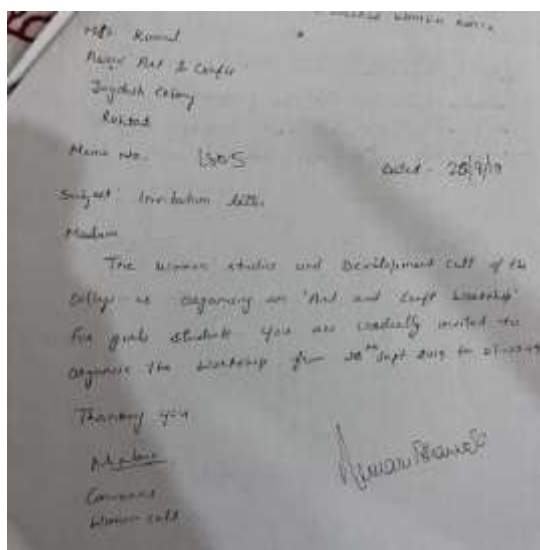 Women
Mrs. Komal
Art & Craft
Jagdish Colony
Rohtak
Memo No. 1305
Dated - 28/9/19
Subject: Invitation letter
Madam
The women studies and Development cell of the
college is organising an 'Art and Craft Workshop'
for girls students. You are cordially invited to
organise the workshop from 30th Sept 2019 to
Thanking you.
Convener
Women cell